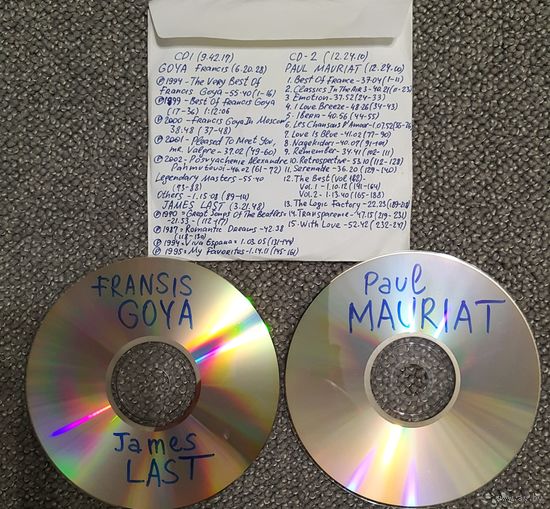 CD1 (9.42.17)
GOYA Francis (6.20.28)
℗1994 - The Very Best Of
Francis Goya - 55.40 (1-16)
℗1999 - Best Of Francis Goya
(17-36) 1.12.06
℗2000 - Francis Goya In Moscow
38.48 (37-48)
℗2001 - Pleased To Meet You,
mt. Valpre - 37.02 (49-60)
℗2002 - Posvyachenie Alexandre
Pahmutovoi - 46.02 (61-72)
Legendary Masters - 55.40
(73-88)
Others - 1.15.08 (89-110)
JAMES LAST (3.21.48)
℗1990 = Great Songs Of The Beatles
- 21.53 - (112-117)
℗1987: Romantic Dreams - 42.38
(118-130)
℗1994 = Viva Espana = 1.03.05
℗1995: My Favorites - 1.14.11 (145-161)
CD-2 (12.24.10)
PAUL MAURIAT (12.24.00)
1. Best Of France - 37.04 (1-11)
2. Classics In The Air 3
3. Emotion - 37.52 (24-33)
4. I Love Breeze - 48.26 (34-43)
5. Iberia - 40.56 (44-55)
6. Les Chansons D'Amour - 1.07.52 (56-76)
7. Love Is Blue - 41.02 (77-90)
8. Nagekidori - 40.07 (91-101)
9. Remember - 34.41 (102-111)
10. Retrospective - 53.10 (112-128)
11. Serenade - 36.20 (129-140)
12. The Best (Vol 1&2)
Vol. 1 - 1.10.12 (141-164)
Vol. 2 - 1.13.40 (165-188)
13. The Logic Factory - 22.23
14. Transparence - 47.15 (219-231)
15. With Love - 52.42 (232-247)
FRANSIS
GOYA
James
LAST
Paul
MAURIAT